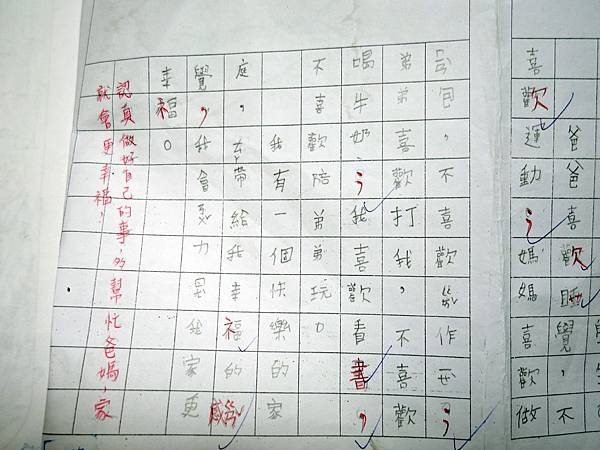 爸爸喜歡睡覺，不
喜歡運動；媽媽喜歡做
包，不喜歡作
；弟弟喜歡打我，不喜歡
喝牛奶；我喜歡看書，
不喜歡陪弟弟玩。
我有一個快樂的家
庭，帶給我幸福的感
覺，我會力是我家更
幸福。
認真做好自己的事，多幫忙爸媽，家
就會更幸福，